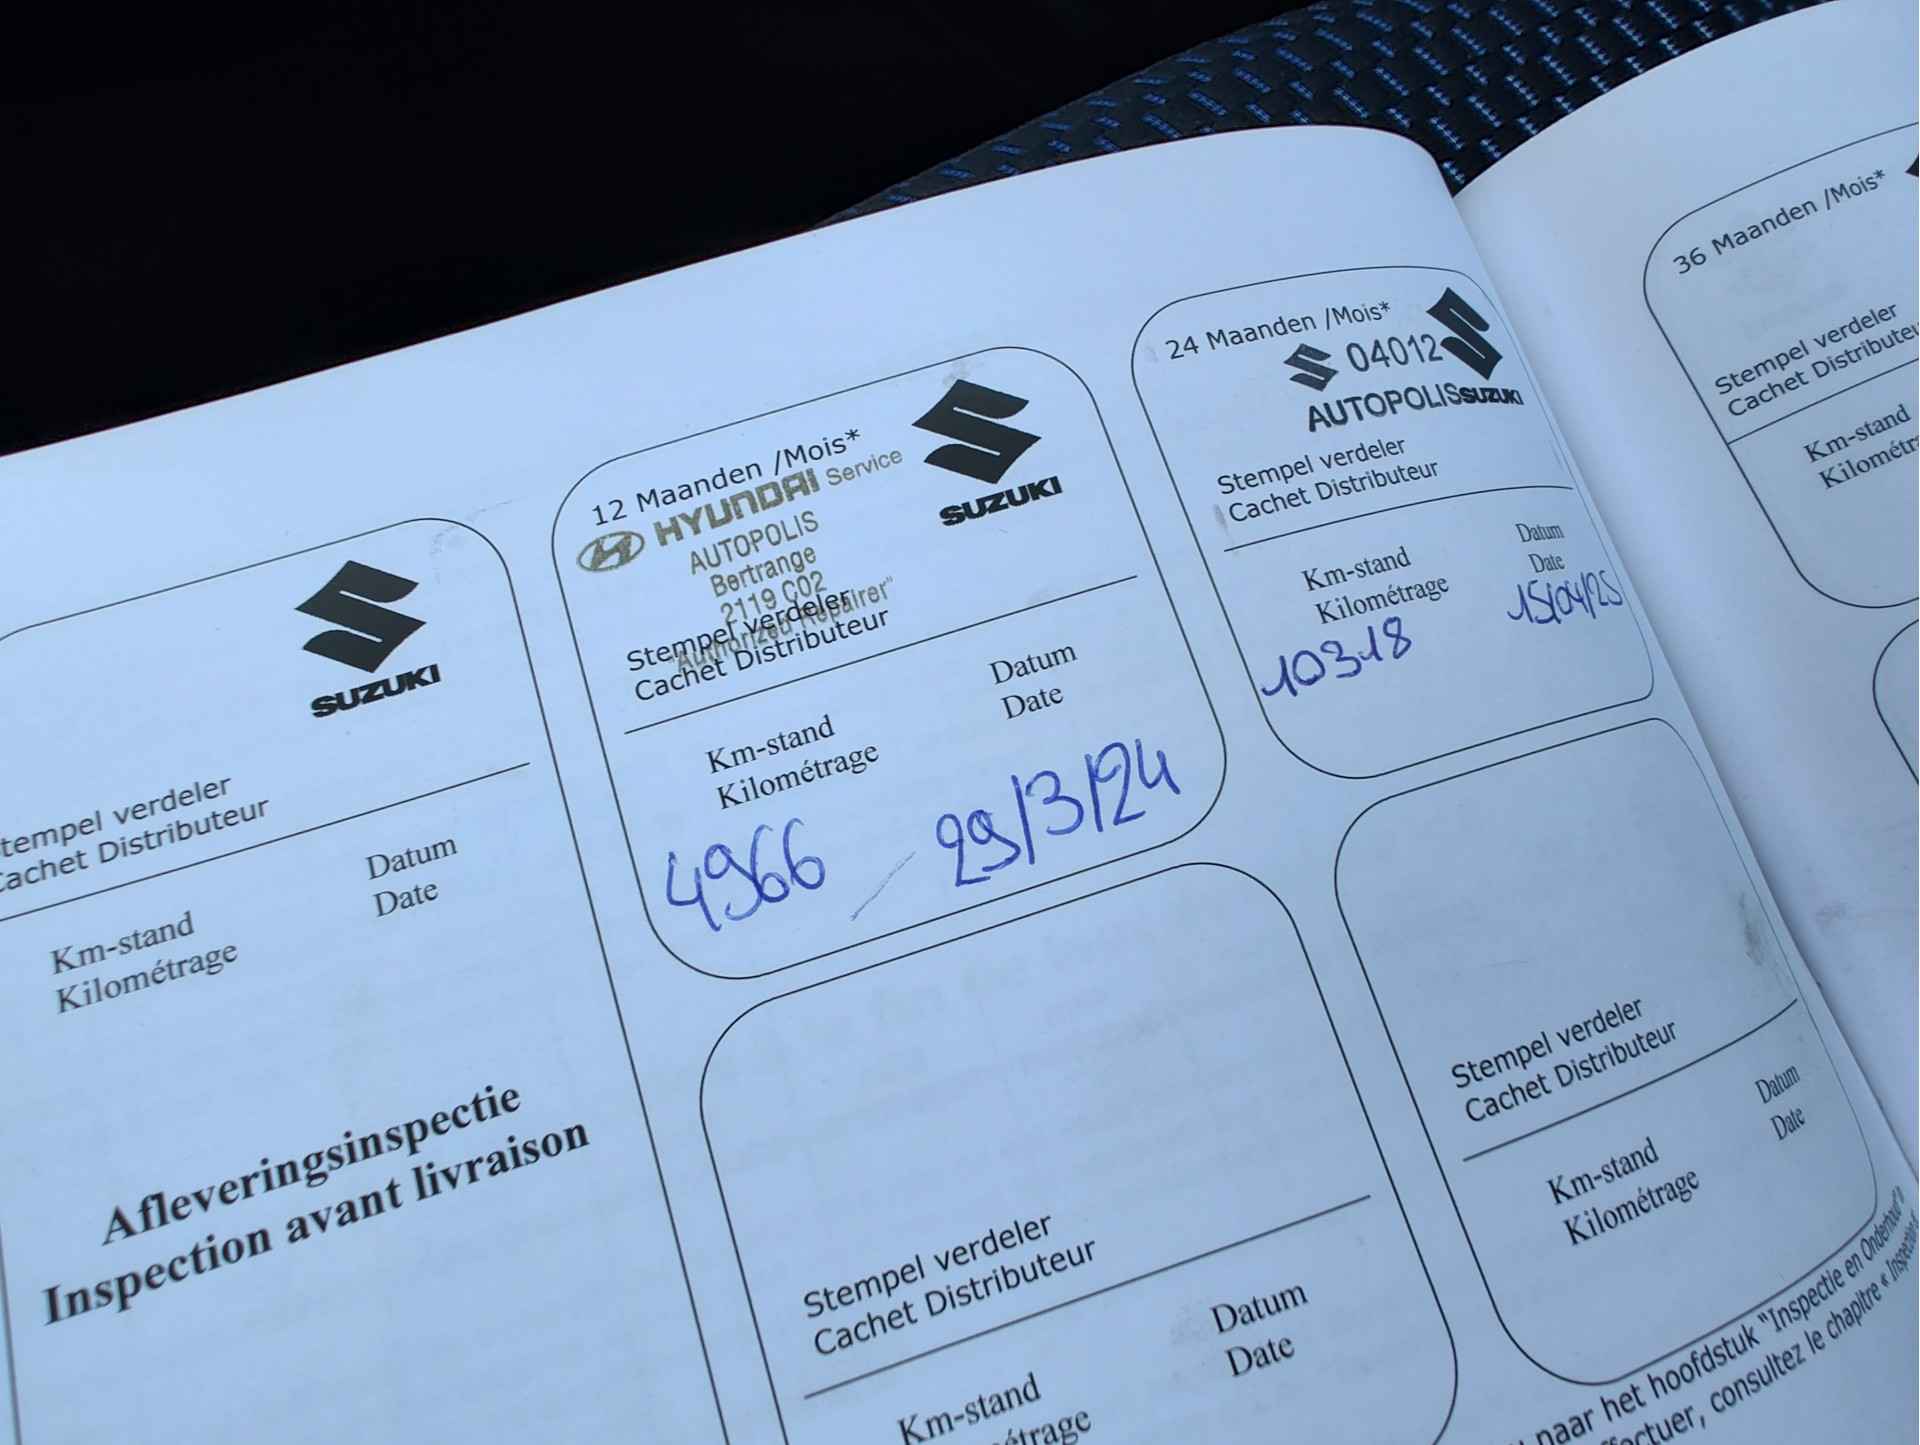 SUZUKI
Stempel verdeler
Cachet Distributeur
Datum
Date
Km-stand
Kilométrage
Afleveringsinspectie
Inspection avant livraison
12 Maanden /Mois*
HYUNDAI Service
AUTOPOLIS
Bertrange
2119 C02
"Authorized Repairer"
SUZUKI
Stempel verdeler
Cachet Distributeur
Datum
Date
Km-stand
Kilométrage
4966
29/3/24
24 Maanden /Mois*
04012
AUTOPOLIS
SUZUKI
Stempel verdeler
Cachet Distributeur
Km-stand
Kilométrage
Datum
Date
10318
15/04/25
36 Maanden /Mois*
Stempel verdeler
Cachet Distributeu
Km-stand
Kilométra
Stempel verdeler
Cachet Distributeur
Datum
Date
Km-stand
Kilométrage
Stempel verdeler
Cachet Distributeur
Datum
Date
Km-stand
Kilométrage
naar het hoofdstuk "Inspectie en Onderhoud"
effectuer, consultez le chapitre « Inspection